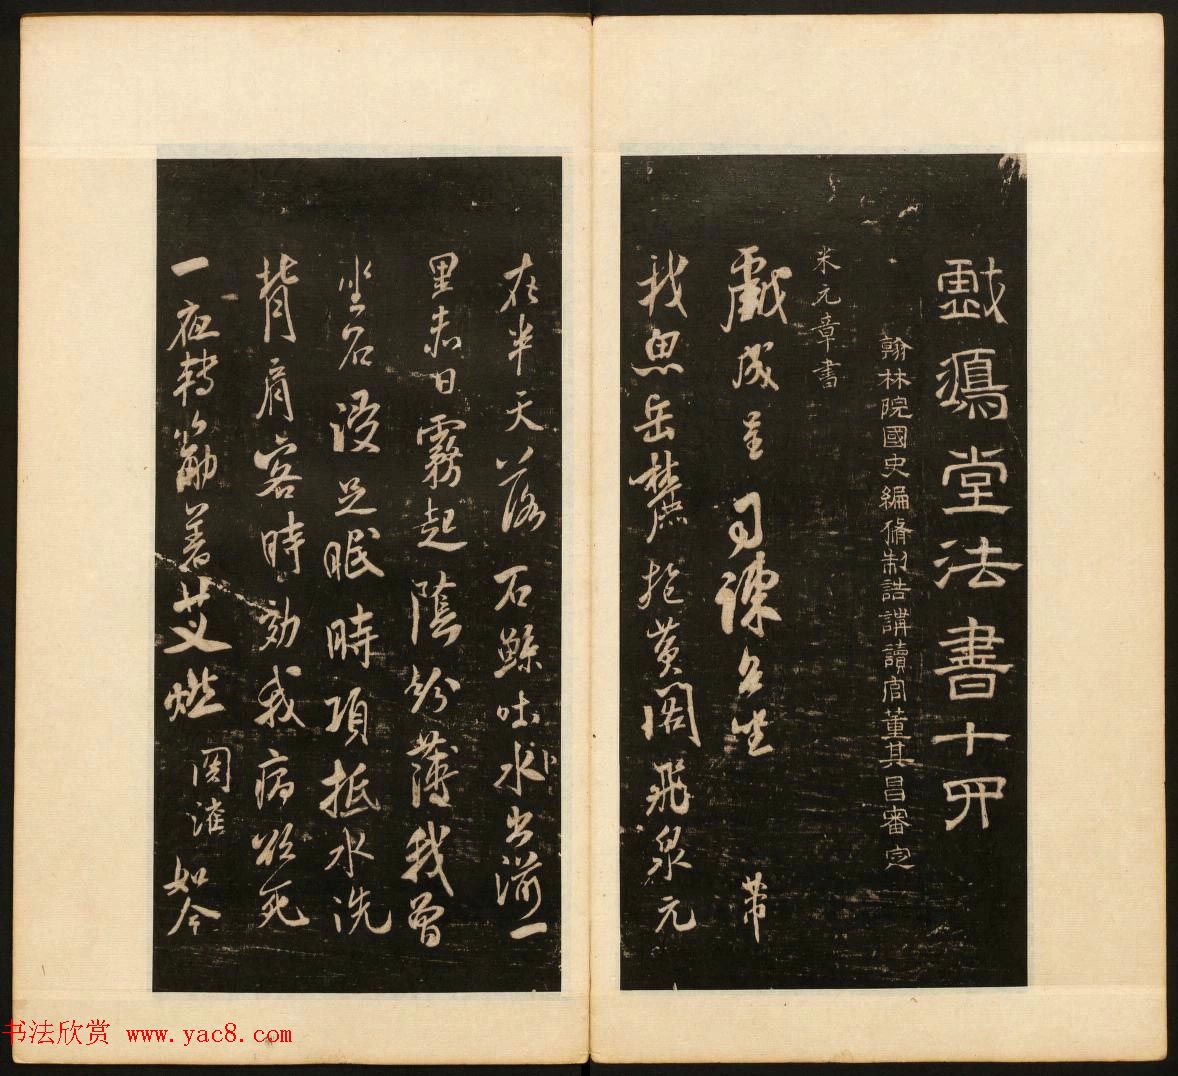 戲鴻堂法書十四
翰林院國史編脩制誥講讀官董其昌審定
米元章書
戲成呈司諫台坐 芾
我思岳麓抱黃閣飛泉元
在半天落石鯨吐水出湔一
里赤日霧起陰紛薄我曾
坐石浸足眠時項抵水洗
背肩客時効我病欲死
一夜轉筋著艾燃關灌如今
书法欣赏 www.yac8.com